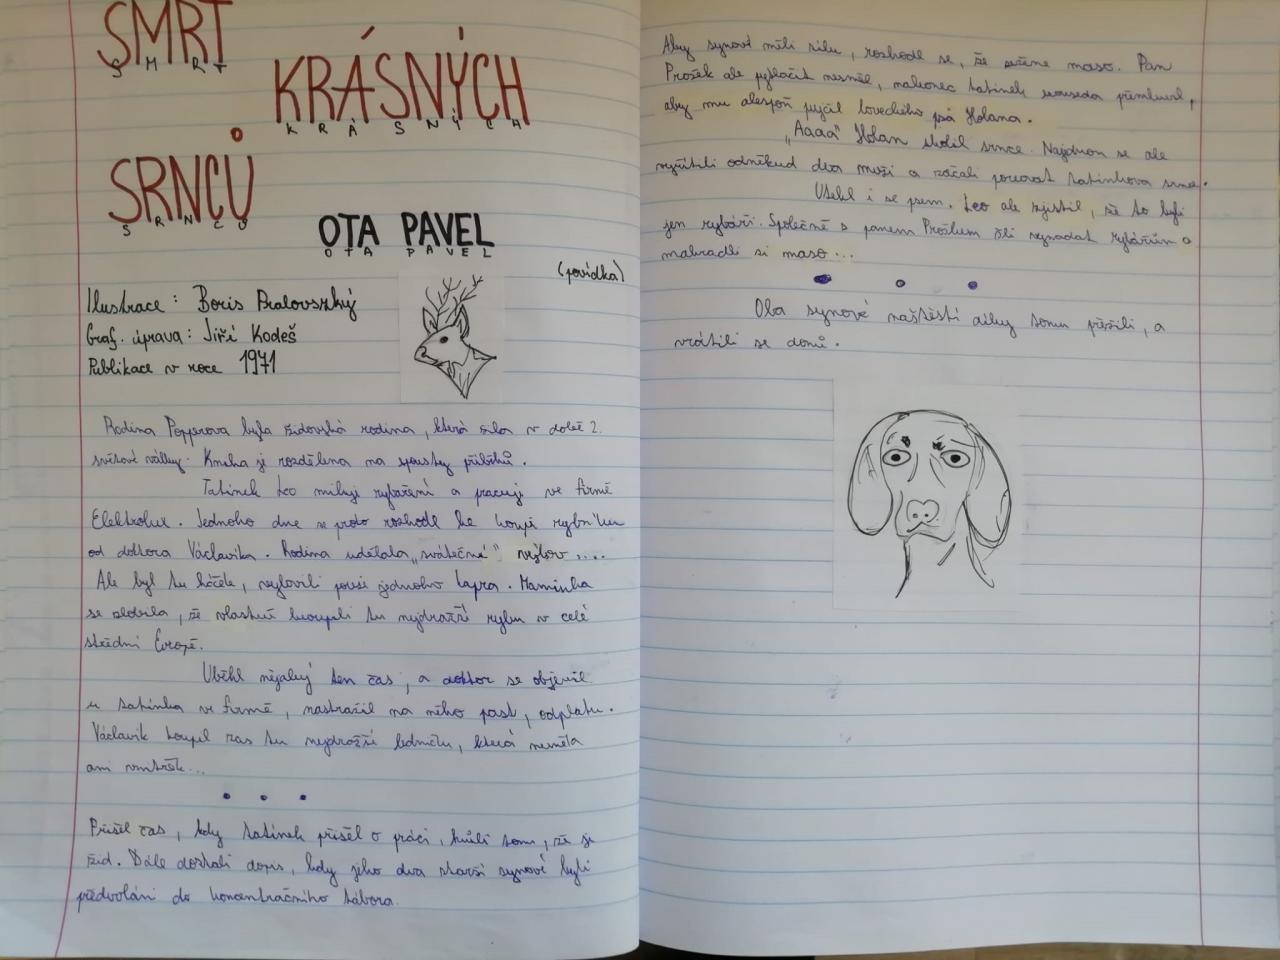 SMRT
S M R T
KRÁSNÝCH
K R Á S N Ý C H
SRNCŮ
S R N C Ů
OTA PAVEL
OTA PAVEL
(povídka)
Ilustrace : Boris
Graf. úprava : Jiří Kodeš
Publikace v roce 1971
Rodina Popperova byla židovská rodina, která žila v době 2.
světové války. Kniha je rozdělena na spousty příběhů.
Tatínek Leo miluje rybaření a pracuje ve firmě
Elektrolux. Jednoho dne se proto rozhodl ke koupi rybníku
od doktora Václavíka. Rodina udělala „svátečně" výlov ....
Ale byl tu háček, vylovili pouze jednoho kapra. Maminka
se zlobila, že vlastně koupili tu nejdražší rybu v celé
střední Evropě.
Uběhl nějaký ten čas, a doktor se objevil
u tatínka ve firmě, nastražil na něho past, odplatu.
Václavík koupil zas tu nejdražší ledničku, která neměla
ani vnitřek...
Přišel čas, kdy tatínek přišel o práci, kvůli tomu, že je
žid. Dále dostali dopis, kdy jeho dva starší synové byli
předvoláni do koncentračního tábora.
Aby synové měli sílu, rozhodl se, že sežene maso. Pan
Prošek ale pytlačit nesměl, nakonec tatínek souseda přemluvil,
aby mu alespoň půjčil loveckého psa Holana.
„Aaaa" Holan skolil srnce. Najednou se ale
vyřítili odněkud dva muži a začali porcovat tatínkova srnce.
Utekl i se psem. Leo ale zjistil, že to byli
jen rybáři. Společně s panem Proškem šli vynadat rybářům a
nahradli si maso...
Oba synové naštěstí díky tomu přežili, a
vrátili se domů.